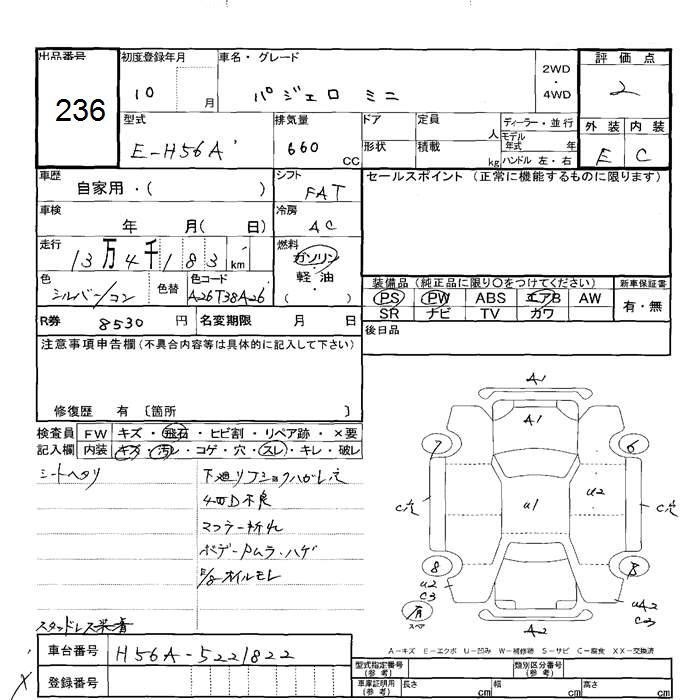 出品番号 初度登録年月 車名・グレード 2WD・4WD 評価点
236 10 月 パジェロ ミニ 2
型式 排気量 ドア 定員 人 ディーラー・並行 外装 内装
E-H56A 660 CC 形状 積載 kg モデル年式 年 E C
ハンドル 左・右
車歴 自家用・( ) シフト FAT セールスポイント (正常に機能するものに限ります)
車検 年 月( 日) 冷房 AC
走行 13万4千183km 燃料 ガソリン・軽・油 ( )
色 シルバー/コン 色替 色コード A26T38A26 装備品 (純正品に限り〇をつけてください) 新車保証書
PS PW ABS エアB AW 有・無
R券 8530 円 名変期限 月 日 SR ナビ TV カワ
後日品
注意事項申告欄(不具合内容等は具体的に記入して下さい)
修復歴 有 〔箇所 〕
検査員 FW キズ・飛石・ヒビ割・リペア跡・×要
記入欄 内装 キズ・汚レ・コゲ・穴・スレ・キレ・破レ
シートヘタリ
4WD不良
マフラー折れ
ボデームラ・ハゲ
E/gオイルモレ
スタッドレス装着
A1
A1
7 6
C穴 U1 U2 C穴
8 8
U2
C3
UA2
C3
有
スペア
A2
A-キズ E-エクボ U-凹み W-補修跡 S-サビ C-腐食 XX-交換済
車台番号 H56A-5221822
登録番号
型式指定番号(参考) 類別区分番号(参考)
車庫証明用(参考) 長さ cm 幅 cm 高さ cm